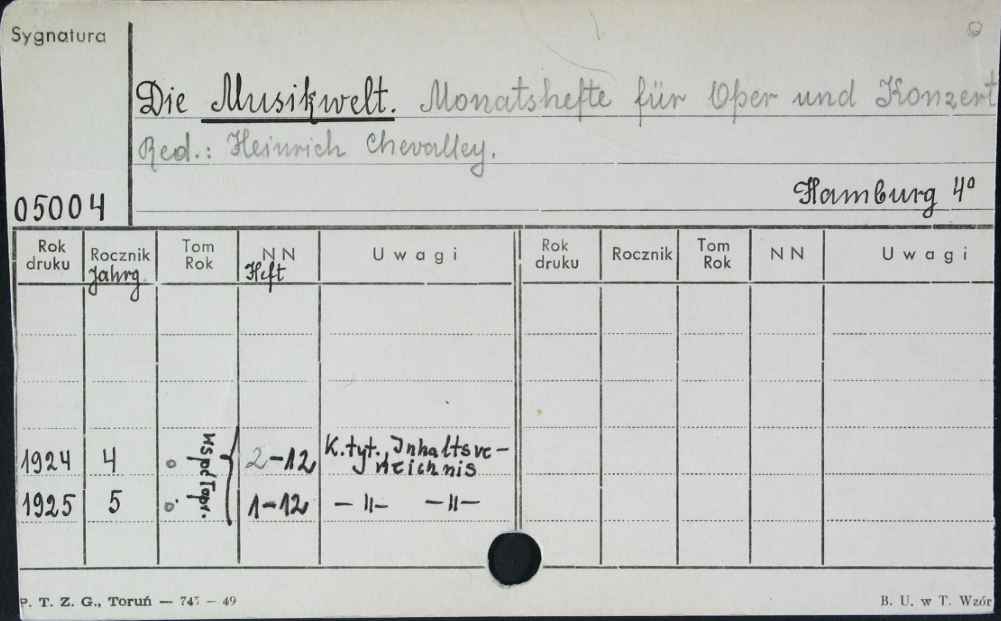 Sygnatura
Die Musikwelt. Monatshefte für Oper und Konzert
Red.: Heinrich Chevalley.
05004
Hamburg 4º
Rok druku Rocznik Tom Rok NN Uwagi Rok druku Rocznik Tom Rok NN Uwagi
Jahrg. Heft
1924 4 o 2-12 K. tyt., Inhaltsve-
zeichnis
1925 5 o 1-12 —〃— —〃—
Wspól opr.
P. T. Z. G., Toruń — 747 — 49
B. U. w T. Wzór